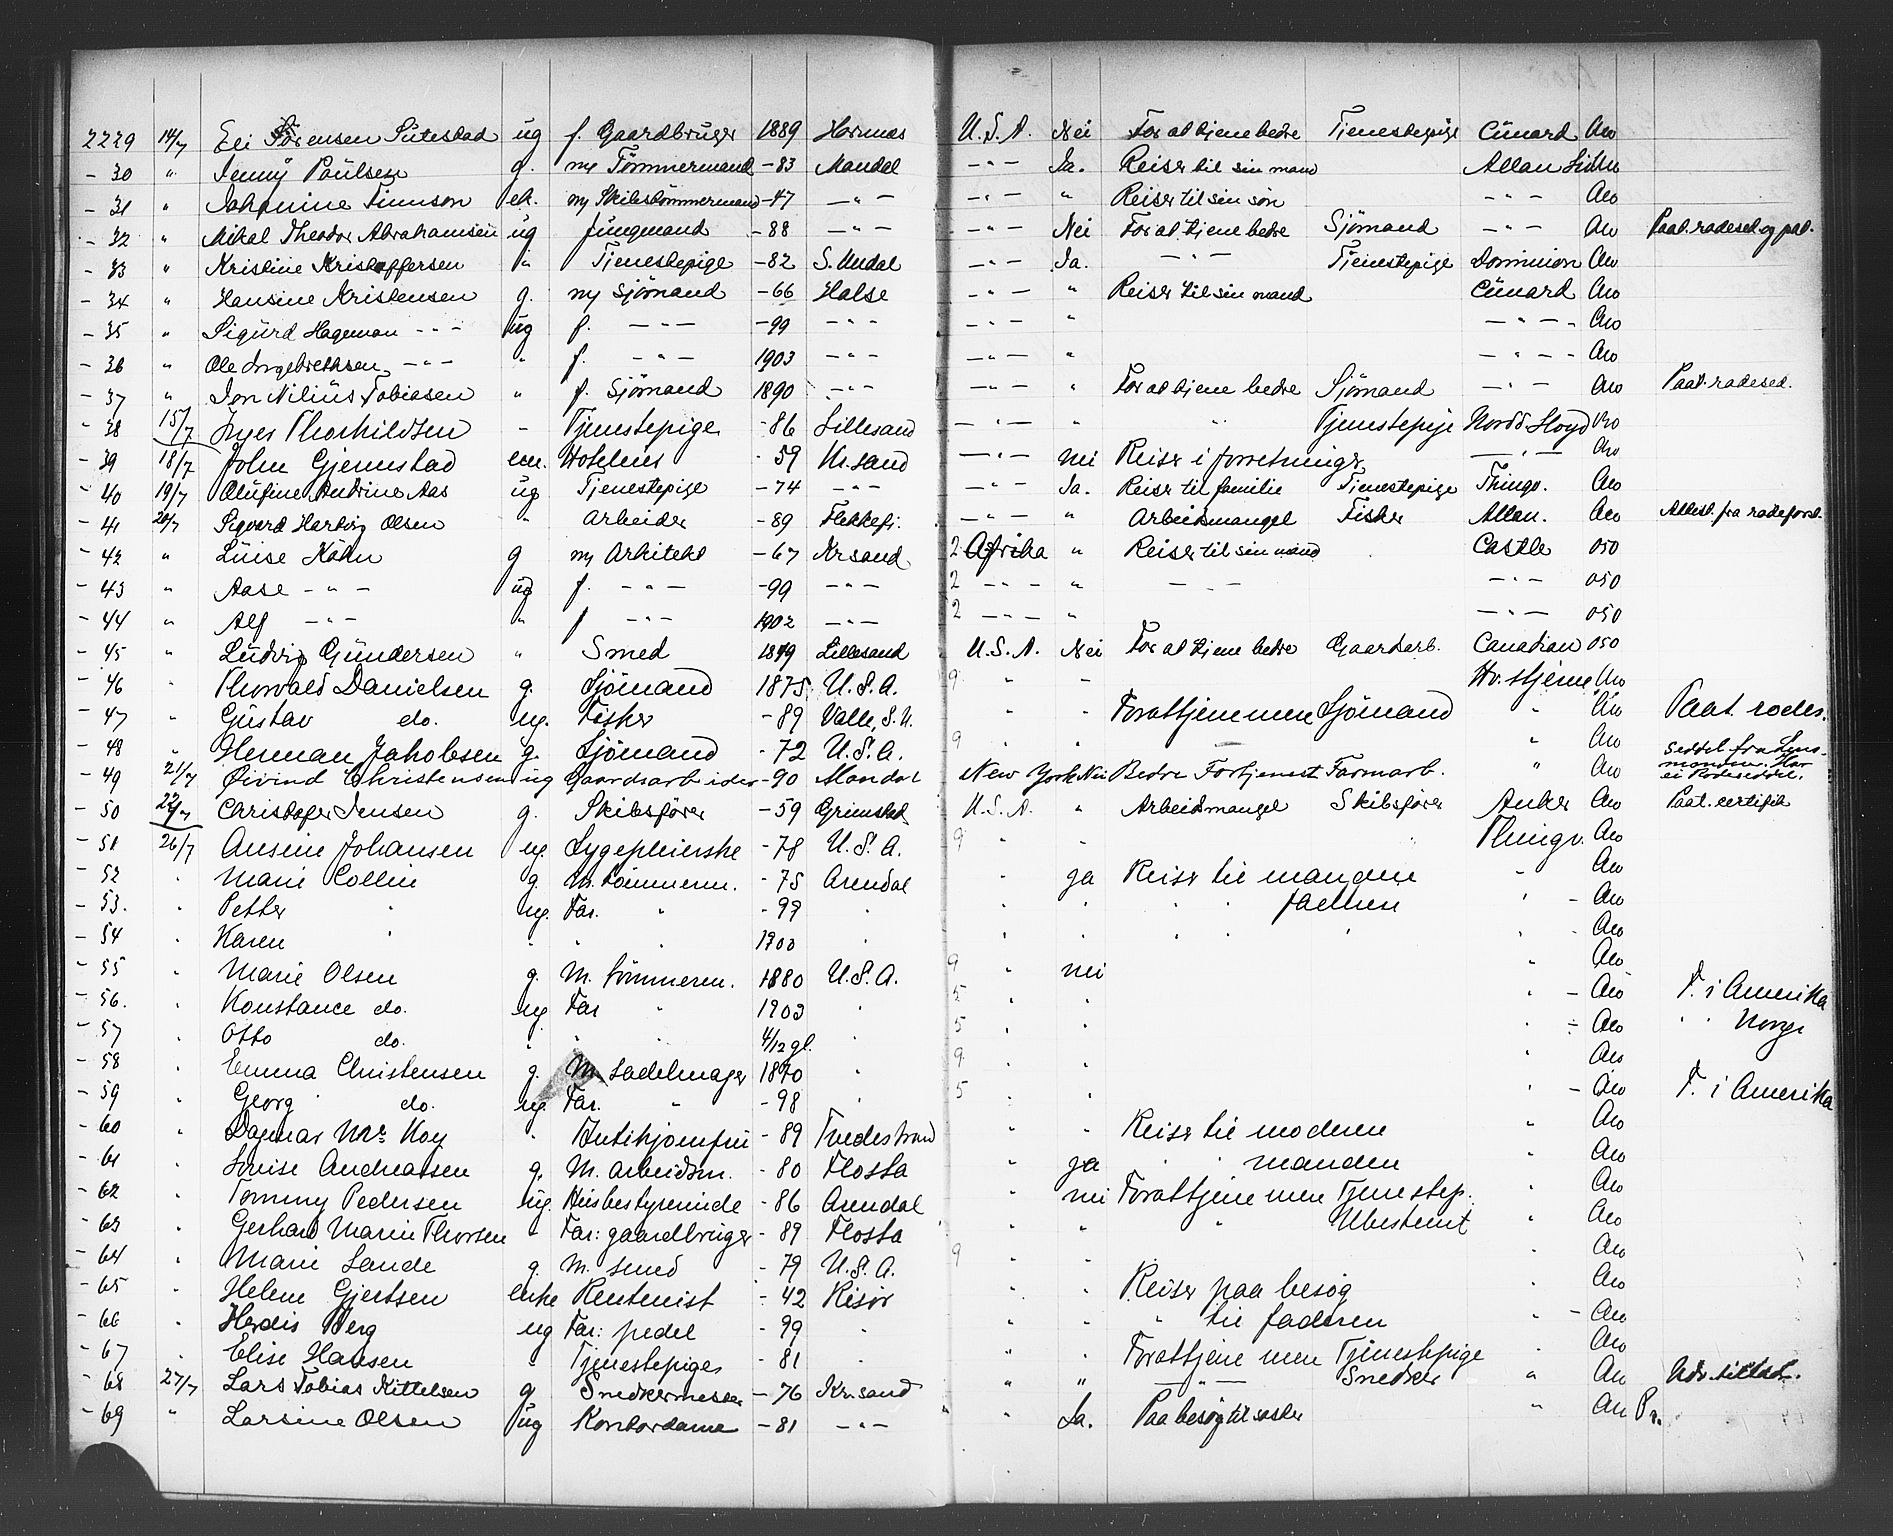 2229 14/7 Eli Sørensen Sutestad ug f. Gaardbruger 1889 Hornnes U.S.A. Nei For at tjene bedre Tjenestepige Cunard Am
- 30 " Jenny Paulsen g. m/ Tømmermand - 83 Mandal - " - Ja. Reiser til sin mand Allan Linien
- 31 " Johanine Tinnson ek. m/ Skibstømmermand - 47 - " - - " - " Reiser til sin søn - " - Am
- 32 " Mikal Theodor Abrahamsen ug Jungmand - 88 - " - - " - Nei For at tjene bedre Sjømand - " - Am Paat. rodesed. og pat.
- 33 " Kristine Kristoffersen " Tjenestepige - 82 S. Undal - " - Ja. - " - Tjenestepige Dominion Am
- 34 " Hansine Kristensen g. m/ Sjømand - 66 Halse - " - " Reiser til sin mand Cunard Am
- 35 " Sigurd Hageman - " - ug f. - " - - 99 - " - - " - " - " - Am
- 36 " Ole Ingebrethsen - " - " f. - " - 1903 - " - - " - " - " - Am
- 37 " Jon Nilius Tobiasen " f. Sjømand 1890 - " - - " - " For at tjene bedre Sjømand - " - Am Paat. rodesed.
- 38 15/7 Inger Thorkildsen - Tjenestepige - 86 Lillesand - " - " " Tjenestepige Nordd Lloyd Am
- 39 18/7 John Gjennestad em. Hoteleier - 59 Kr.sand - " - nei Reise i forretninger - " - Am
- 40 19/7 Olufine Andrine Aas ug Tjenestepige - 74 - " - - " - Ja. Reiser til familie Tjenestepige Thingv. Am
- 41 20/7 Sigvard Hartvig Olsen " Arbeider - 89 Flekkefj. - " - " Arbeidsmangel Fisker Allan. Am Attest. fra rodeforst.
- 42 " Luise Köhn g m/ Arkitekt - 67 Kr.sand 2 Afrika " Reiser til sin mand Castle 050
- 43 " Aase - " - ug f. - " - - 99 - " - 2 - " - " - " - - " - 050
- 44 " Alf - " - " f - " - 1902 - " - 2 - " - " - " - 050
- 45 " Ludvig Gundersen " Smed 1879 Lillesand U.S.A. Nei For at tjene bedre Gaardarb. Canadian 050
- 46 " Thorvald Danielsen g. Sjømand 1875 U.S.A. 9 " " Hv. stjerne Am
- 47 " Gustav do. ug. Fisker - 89 Valle, S.U. " " For at tjene mer Sjømand " Am Paat. rodes.
- 48 " Herman Jakobsen g. Sjømand - 72 U.S.A. 9 " " " Am seddel fra Lens-
- 49 21/7 Øivind Christensen ug Gaardsarbeider - 90 Mandal New York Nei Bedre Fortjenest Farmarb. " Am manden. Har ei Rodeseddel.
- 50 22/7 Christofer Jensen g. Skibsfører - 59 Grimstad U.S.A. " Arbeidsmangel Skibsfører Anker Am Paat. certifik
- 51 26/7 Ansine Johansen ug. Sygepleierske - 78 U.S.A. 9 " " Thingv. Am
- 52 " Marie Collin g. M. tømmerm. - 75 Arendal " ja Reiser til manden " Am
- 53. " Petter " ug. Far. " - 99 " " " " " faderen " - Am
- 54 " Karen " " " " 1900 " " " " " " " - Am
- 55 " Marie Olsen g. M. tømmerm. 1880 U.S.A. 9 " nei " Am
- 56. " Konstance do. ug Far " 1903 " 5 " " " - Am F. i Amerika
- 57 " Otto do. " " " 4/12 gl. " 5 " " " - Am " " Norge
- 58 " Emma Christensen g. M. sadelmager 1870 " 9 " Am
- 59 " Georg do. ug. Far. " - 98 " 5 " " " - Am F. i Amerika
- 60 " Dagmar Mc Koy " Butikjomfru - 89 Tvedestrand " " Reiser til moderen " Am
- 61 " Louise Andreassen g. M. arbeidsm. - 80 Flosta " ja " " manden " Am
- 62 " Tommy Pedersen ug. Husbestyrerinde - 86 Arendal " nei For at tjene mer Tjenestep. " Am
- 63 " Gerhard Marin Thorsen " Far: gaardbruger - 89 Flosta " " " Ubestemt " Am
- 64 " Marie Lande g. M. smed - 79 U.S.A. 9 " " " Am
- 65 " Helene Gjertsen enke Rentenist - 42 Risør " " Reiser paa besøg " Am
- 66 " Herdis Berg ug Far: pedel - 99 " " " " til faderen " - Am
- 67 " Elise Hansen " Tjenestepige - 81 " " " For at tjene mer Tjenestepige " Am
- 68 27/7 Lars Tobias Kittelsen g Snedkermester - 76 Kr.sand " " - " - Snedker " Am Udv. tillad.
- 69 " Larsine Olsen ug Kontordame - 81 - " - " Ja. Paa besøg til søster " Am Pr.